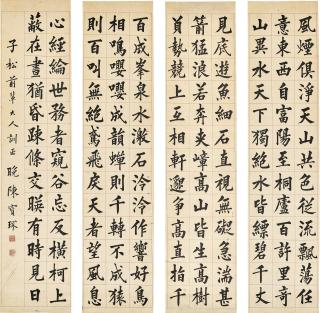 風煙俱淨天山共色從流飄蕩任
意東西自富陽至桐廬百許里奇
山異水天下獨絕水皆縹碧千丈
見底遊魚細石直視無礙急湍甚
箭猛浪若奔夾嶂高山皆生寒樹
負勢競上互相軒邈爭高直指千
百成峯泉水激石泠泠作響好鳥
相鳴嚶嚶成韻蟬則千轉不窮猿
則百叫無絕鳶飛戾天者望峯息
心經綸世務者窺谷忘反橫柯上
蔽在晝猶昏疎條交映有時見日
子松前輩大人訓正 晚陳寶琛